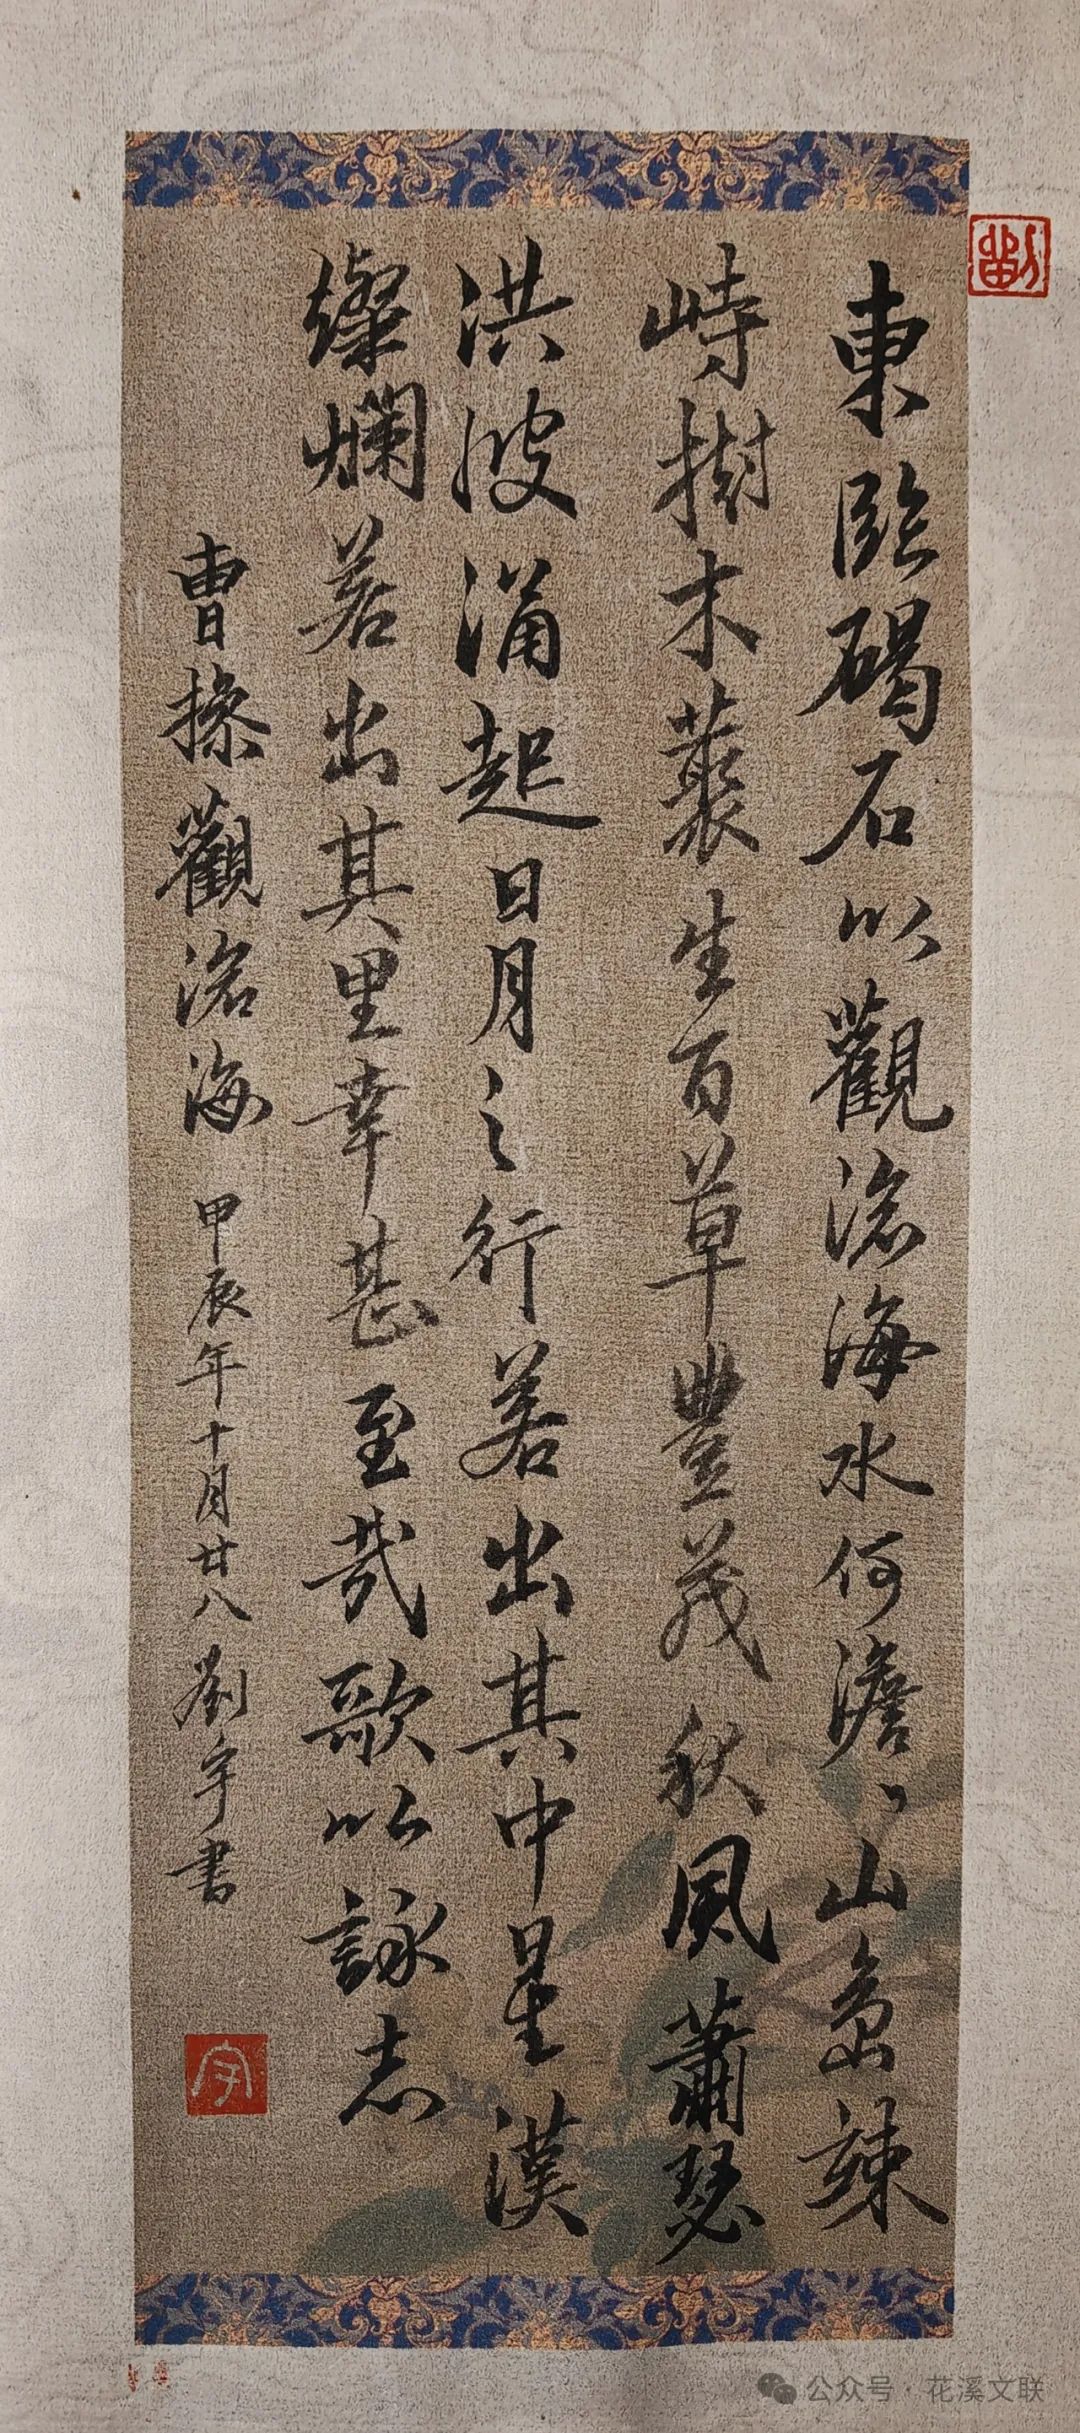 東臨碣石以觀滄海水何澹〻山島竦
峙樹木叢生百草豐茂秋風蕭瑟
洪波涌起日月之行若出其中星漢
燦爛若出其里幸甚至哉歌以詠志
曹操觀滄海 甲辰年十月廿八 劉宇書
宇
劉
公众号·花溪文联